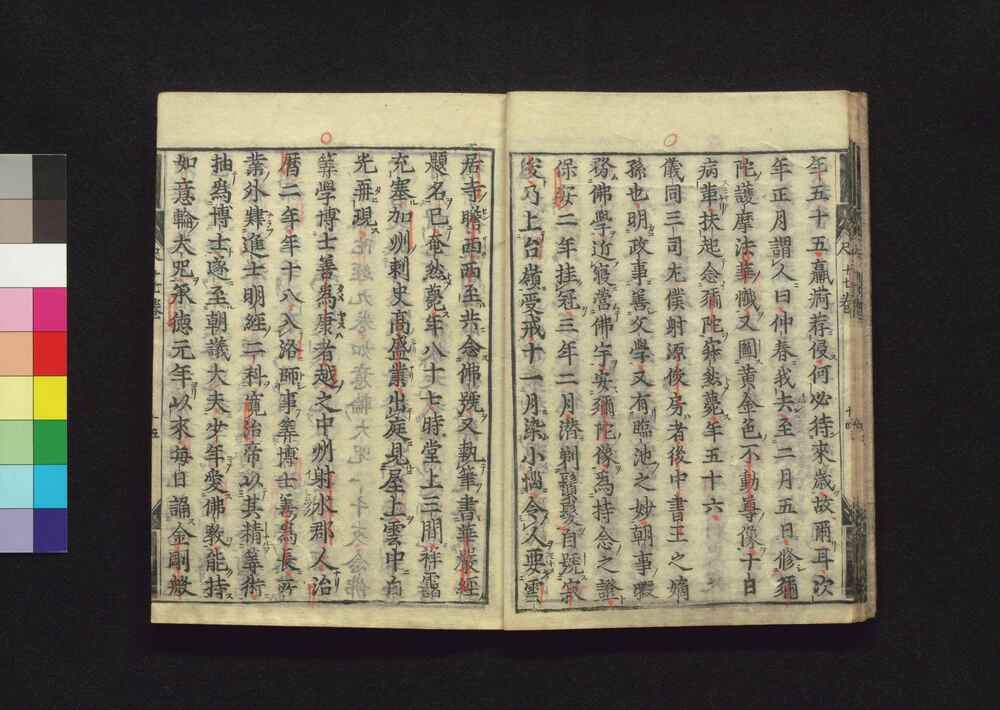 年五十五羸痾荐侵何必待來歳故爾耳次
年正月謂人曰仲春我去至二月五日修彌
陀護摩法華懺又圖黄金色不動尊像十日
病革扶起念彌陀寂然薨年五十六
儀同三司左僕射源俊房者後中書王之嫡
孫也明政事善文學又有臨池之妙朝事暇
務佛學近寢營佛宇安彌陀像爲持念之證
保安二年挂冠三年二月潜剃鬚髮自號寂
俊乃上台嶺受戒十一月染小惱令人要雲
居寺瞻西西至共念佛號又執筆書華嚴經
題名已奄然薨年八十七時堂上三間祥靄
充塞加州刺史高盛業出庭見屋上雲中白
光再現
筭學博士善爲康者越之中州射水郡人治
暦二年年十八入洛師事筭博士善爲長所
業外肄進士明經二科寛治帝以其精等術
抽爲博士遂至朝議大夫少年愛佛教能持
如意輪大咒承德元年以來毎日誦金剛般